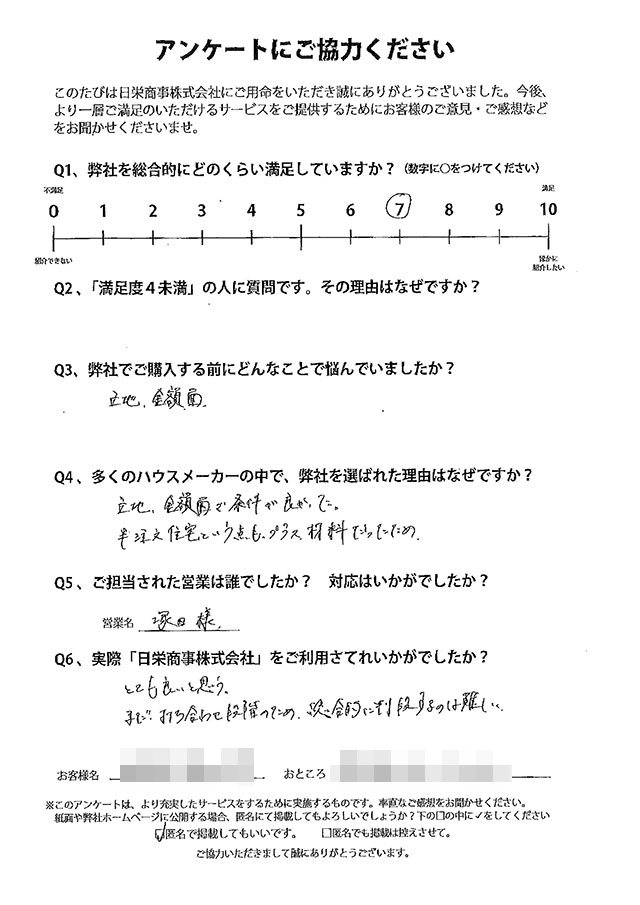 アンケートにご協力ください
このたびは日栄商事株式会社にご用命をいただき誠にありがとうございました。今後、
より一層ご満足のいただけるサービスをご提供するためにお客様のご意見・ご感想など
をお聞かせくださいませ。
Q1、弊社を総合的にどのくらい満足していますか？（数字に○をつけてください）
不満足 満足
0 1 2 3 4 5 6 7 8 9 10
紹介できない 確かに
紹介したい
Q2、「満足度４未満」の人に質問です。その理由はなぜですか？
Q3、弊社でご購入する前にどんなことで悩んでいましたか？
立地、金額面。
Q4、多くのハウスメーカーの中で、弊社を選ばれた理由はなぜですか？
立地、金額面で条件が良かった。
半注文住宅という点も、プラス材料だったため。
Q5、ご担当された営業は誰でしたか？ 対応はいかがでしたか？
営業名 塚田様
Q6、実際「日栄商事株式会社」をご利用さてれいかがでしたか？
とても良いと思う。
まだ、打ち合わせ段階のため、総合的に判段するのは難しい。
お客様名 おところ
※このアンケートは、より充実したサービスをするために実施するものです。率直なご感想をお聞かせください。
紙面や弊社ホームページに公開する場合、匿名にて掲載してもよろしいでしょうか？下の□の中に✓をしてください
☑匿名で掲載してもいいです。 □匿名でも掲載は控えさせて。
ご協力いただきまして誠にありがとうございます。